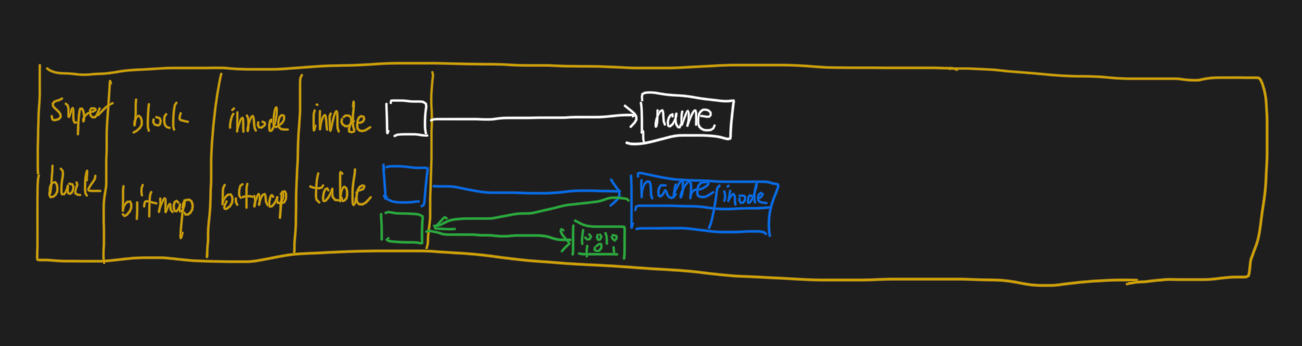 Super
block
block
bitmap
innode
bitmap
innode
table
name
name inode
10010
101